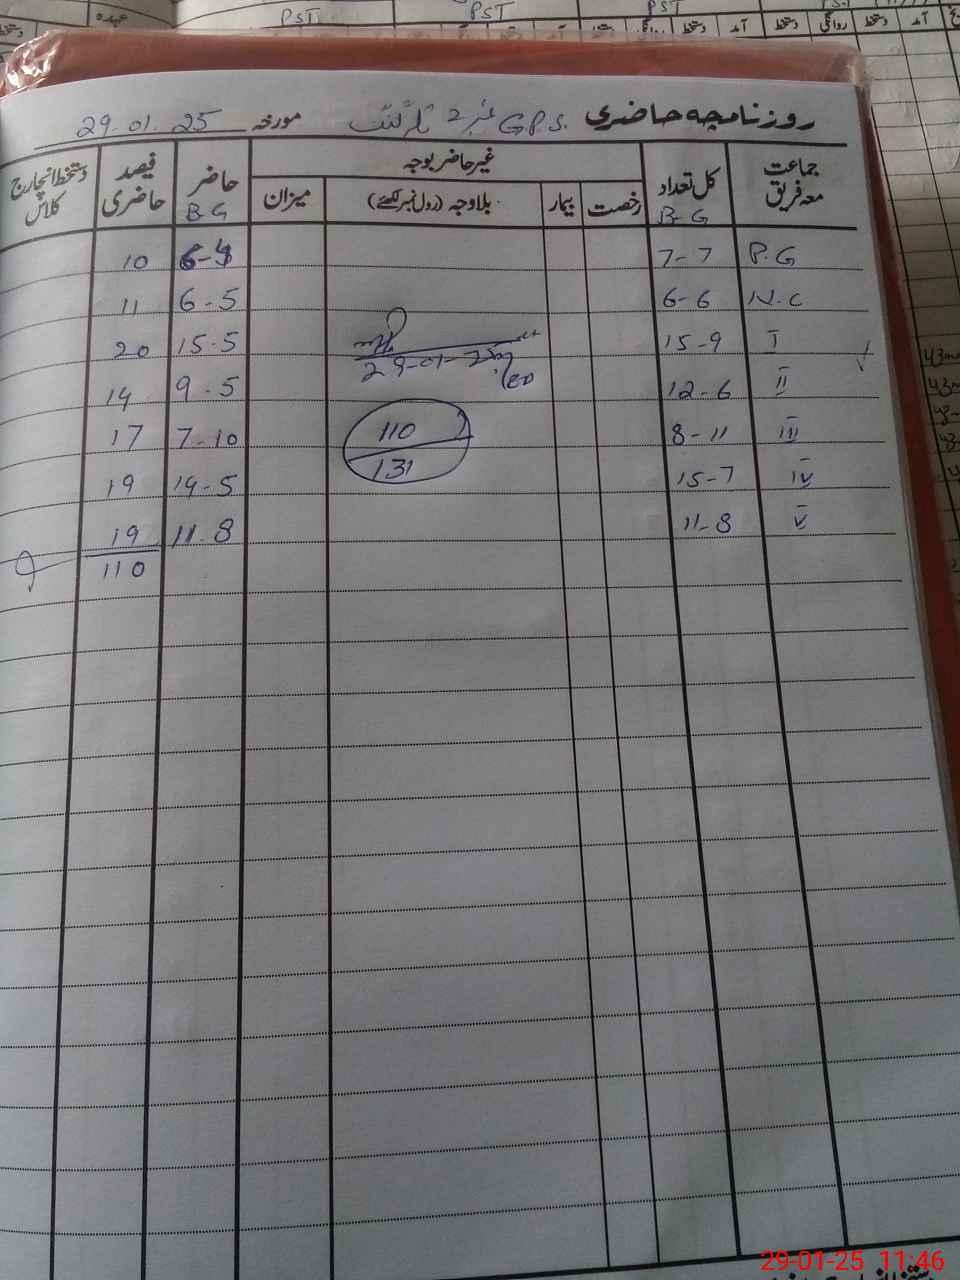 عہدہ PST PST PST
دستخط آمد دستخط روانگی آمد دستخط روانگی دستخط آمد
روزنامچہ حاضری G.P.S. نمبر 2 مورخہ 29.01.25
جماعت معہ فریق کل تعداد B-G غیر حاضر بوجہ حاضر B G فیصد حاضری دستخط انچارج کلاس
رخصت بیمار بلاوجہ (رول نمبر لکھئے) میزان
P.G 7-7 6-4 10
N.C 6-6 6-5 11
I 15-9 15-5 20
II 12-6 9-5 14
III 8-11 7-10 17
IV 15-7 14-5 19
V 11-8 11-8 19
110
29-01-25
110
131
29-01-25 11:46